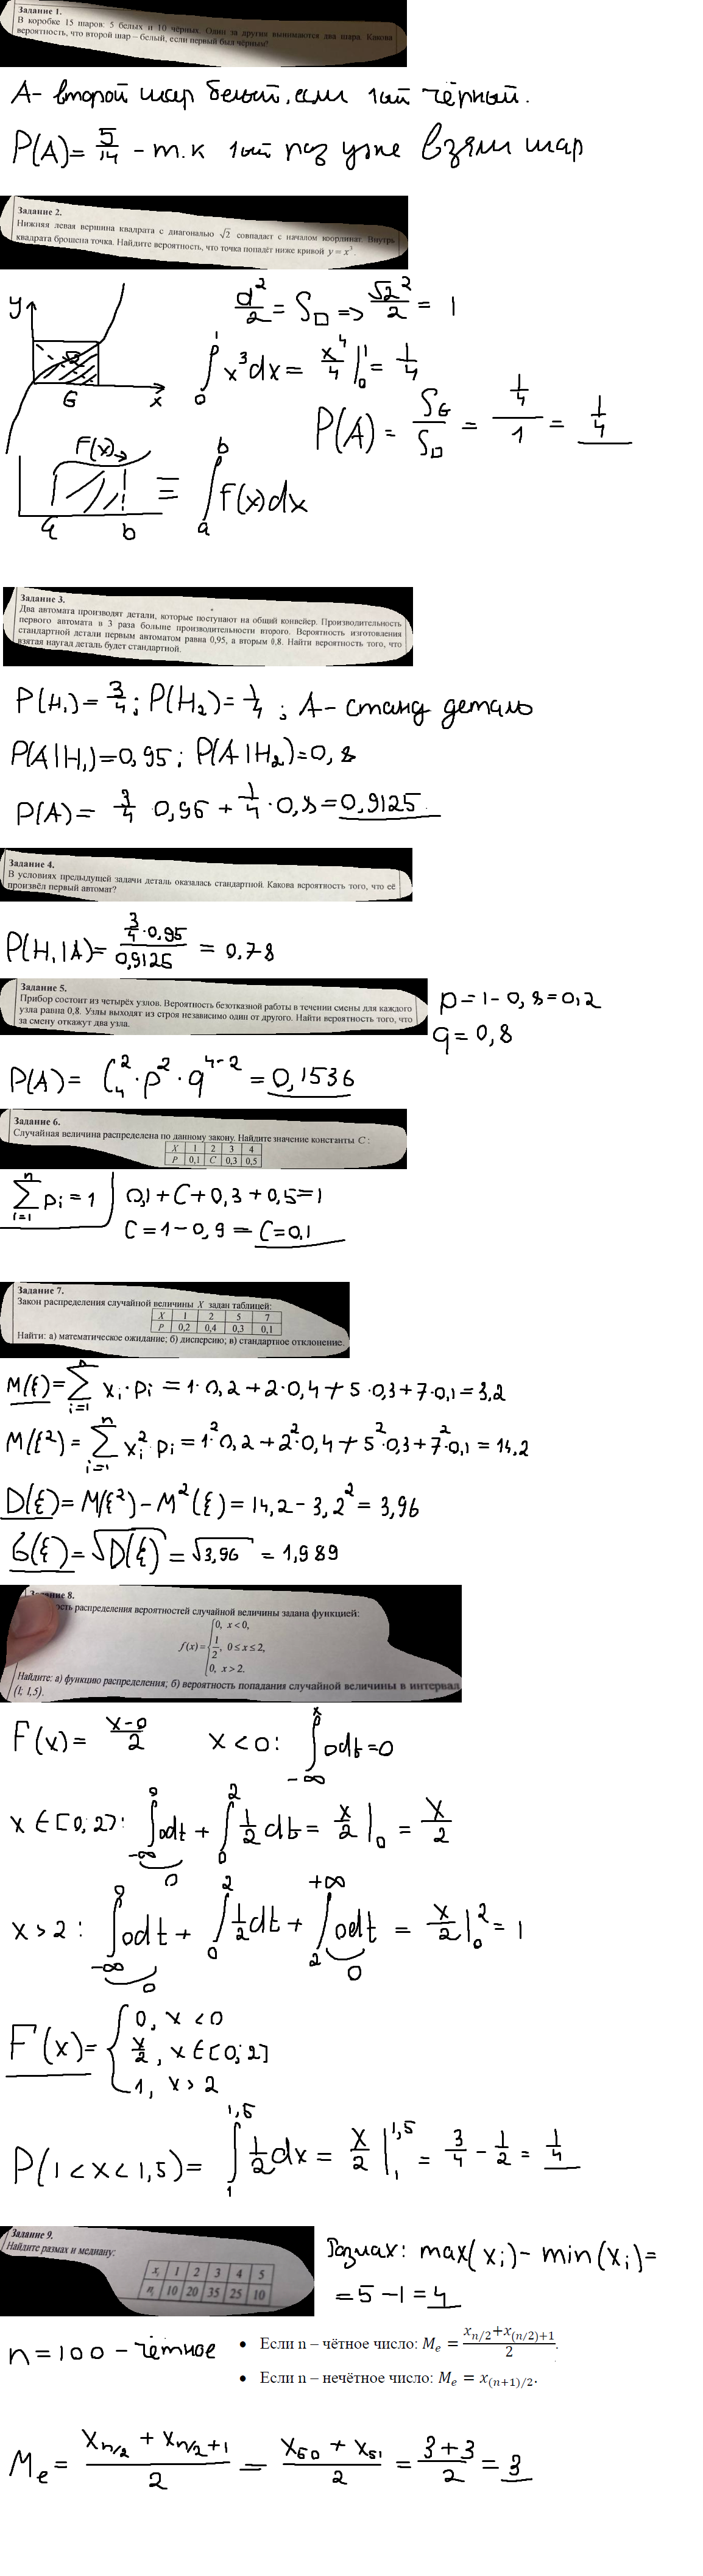 Задание 1.
В коробке 15 шаров: 5 белых и 10 чёрных. Один за другим вынимаются два шара. Какова
вероятность, что второй шар – белый, если первый был чёрным?
A- второй шар белый, если 1ый чёрный.
P(A)= 5/14 - т.к 1ый раз уже взяли шар
Задание 2.
Нижняя левая вершина квадрата с диагональю √2 совпадает с началом координат. Внутрь
квадрата брошена точка. Найдите вероятность, что точка попадёт ниже кривой y = x³.
d²/2 = S□ => √2²/2 = 1
y
G
x
∫₀¹ x³dx = x⁴/4 |₀¹ = 1/4
P(A) = S_G/S□ = (1/4)/1 = 1/4
F(x)
a b
≡ ∫ₐᵇ f(x)dx
Задание 3.
Два автомата производят детали, которые поступают на общий конвейер. Производительность
первого автомата в 3 раза больше производительности второго. Вероятность изготовления
стандартной детали первым автоматом равна 0,95, а вторым 0,8. Найти вероятность того, что
взятая наугад деталь будет стандартной.
P(H₁)= 3/4; P(H₂)= 1/4; A- станд деталь
P(A|H₁)=0,95; P(A|H₂)=0,8
P(A)= 3/4 · 0,95 + 1/4 · 0,8 = 0,9125
Задание 4.
В условиях предыдущей задачи деталь оказалась стандартной. Какова вероятность того, что её
произвёл первый автомат?
P(H₁|A)= (3/4·0,95)/0,9125 = 0,78
Задание 5.
Прибор состоит из четырёх узлов. Вероятность безотказной работы в течении смены для каждого
узла равна 0,8. Узлы выходят из строя независимо один от другого. Найти вероятность того, что
за смену откажут два узла.
p=1-0,8=0,2
q=0,8
P(A)= C₄²·p²·q⁴⁻² = 0,1536
Задание 6.
Случайная величина распределена по данному закону. Найдите значение константы C:
X 1 2 3 4
P 0,1 C 0,3 0,5
∑ᵢ₌₁ⁿ pᵢ = 1 0,1+C+0,3+0,5=1
C=1-0,9 = C=0,1
Задание 7.
Закон распределения случайной величины X задан таблицей:
X 1 2 5 7
P 0,2 0,4 0,3 0,1
Найти: а) математическое ожидание; б) дисперсию; в) стандартное отклонение.
M(ξ)=∑ᵢ₌₁ⁿ xᵢ·pᵢ = 1·0,2+2·0,4+5·0,3+7·0,1=3,2
M(ξ²)=∑ᵢ₌₁ⁿ xᵢ²·pᵢ = 1²·0,2+2²·0,4+5²·0,3+7²·0,1=14,2
D(ξ)=M(ξ²)-M²(ξ)=14,2-3,2²=3,96
σ(ξ)=√D(ξ) = √3,96 = 1,989
ние 8.
ость распределения вероятностей случайной величины задана функцией:
f(x)= { 0, x<0,
1/2, 0≤x≤2,
0, x>2.
Найдите: а) функцию распределения; б) вероятность попадания случайной величины в интервал
(1; 1,5).
F(x)= (x-0)/2 x<0: ∫₋∞ˣ 0dt=0
x∈[0;2]: ∫₋∞⁰ 0dt + ∫₀² 1/2 dt = x/2 |₀ = x/2
0
x>2: ∫₋∞⁰ 0dt + ∫₀² 1/2 dt + ∫₂⁺∞ 0dt = x/2 |₀² = 1
0 0
F(x)= { 0, x<0
x/2, x∈[0;2]
1, x>2
P(1<x<1,5)= ∫₁¹·⁵ 1/2 dx = x/2 |₁¹·⁵ = 3/4 - 1/2 = 1/4
Задание 9.
Найдите размах и медиану:
xᵢ 1 2 3 4 5
nᵢ 10 20 35 25 10
Размах: max(xᵢ)- min(xᵢ)=
=5-1=4
n=100 - чётное
• Если n – чётное число: Mₑ = (x_{n/2}+x_{(n/2)+1})/2.
• Если n – нечётное число: Mₑ = x_{(n+1)/2}.
Mₑ = (x_{n/2} + x_{n/2+1})/2 = (x₅₀ + x₅₁)/2 = (3+3)/2 = 3